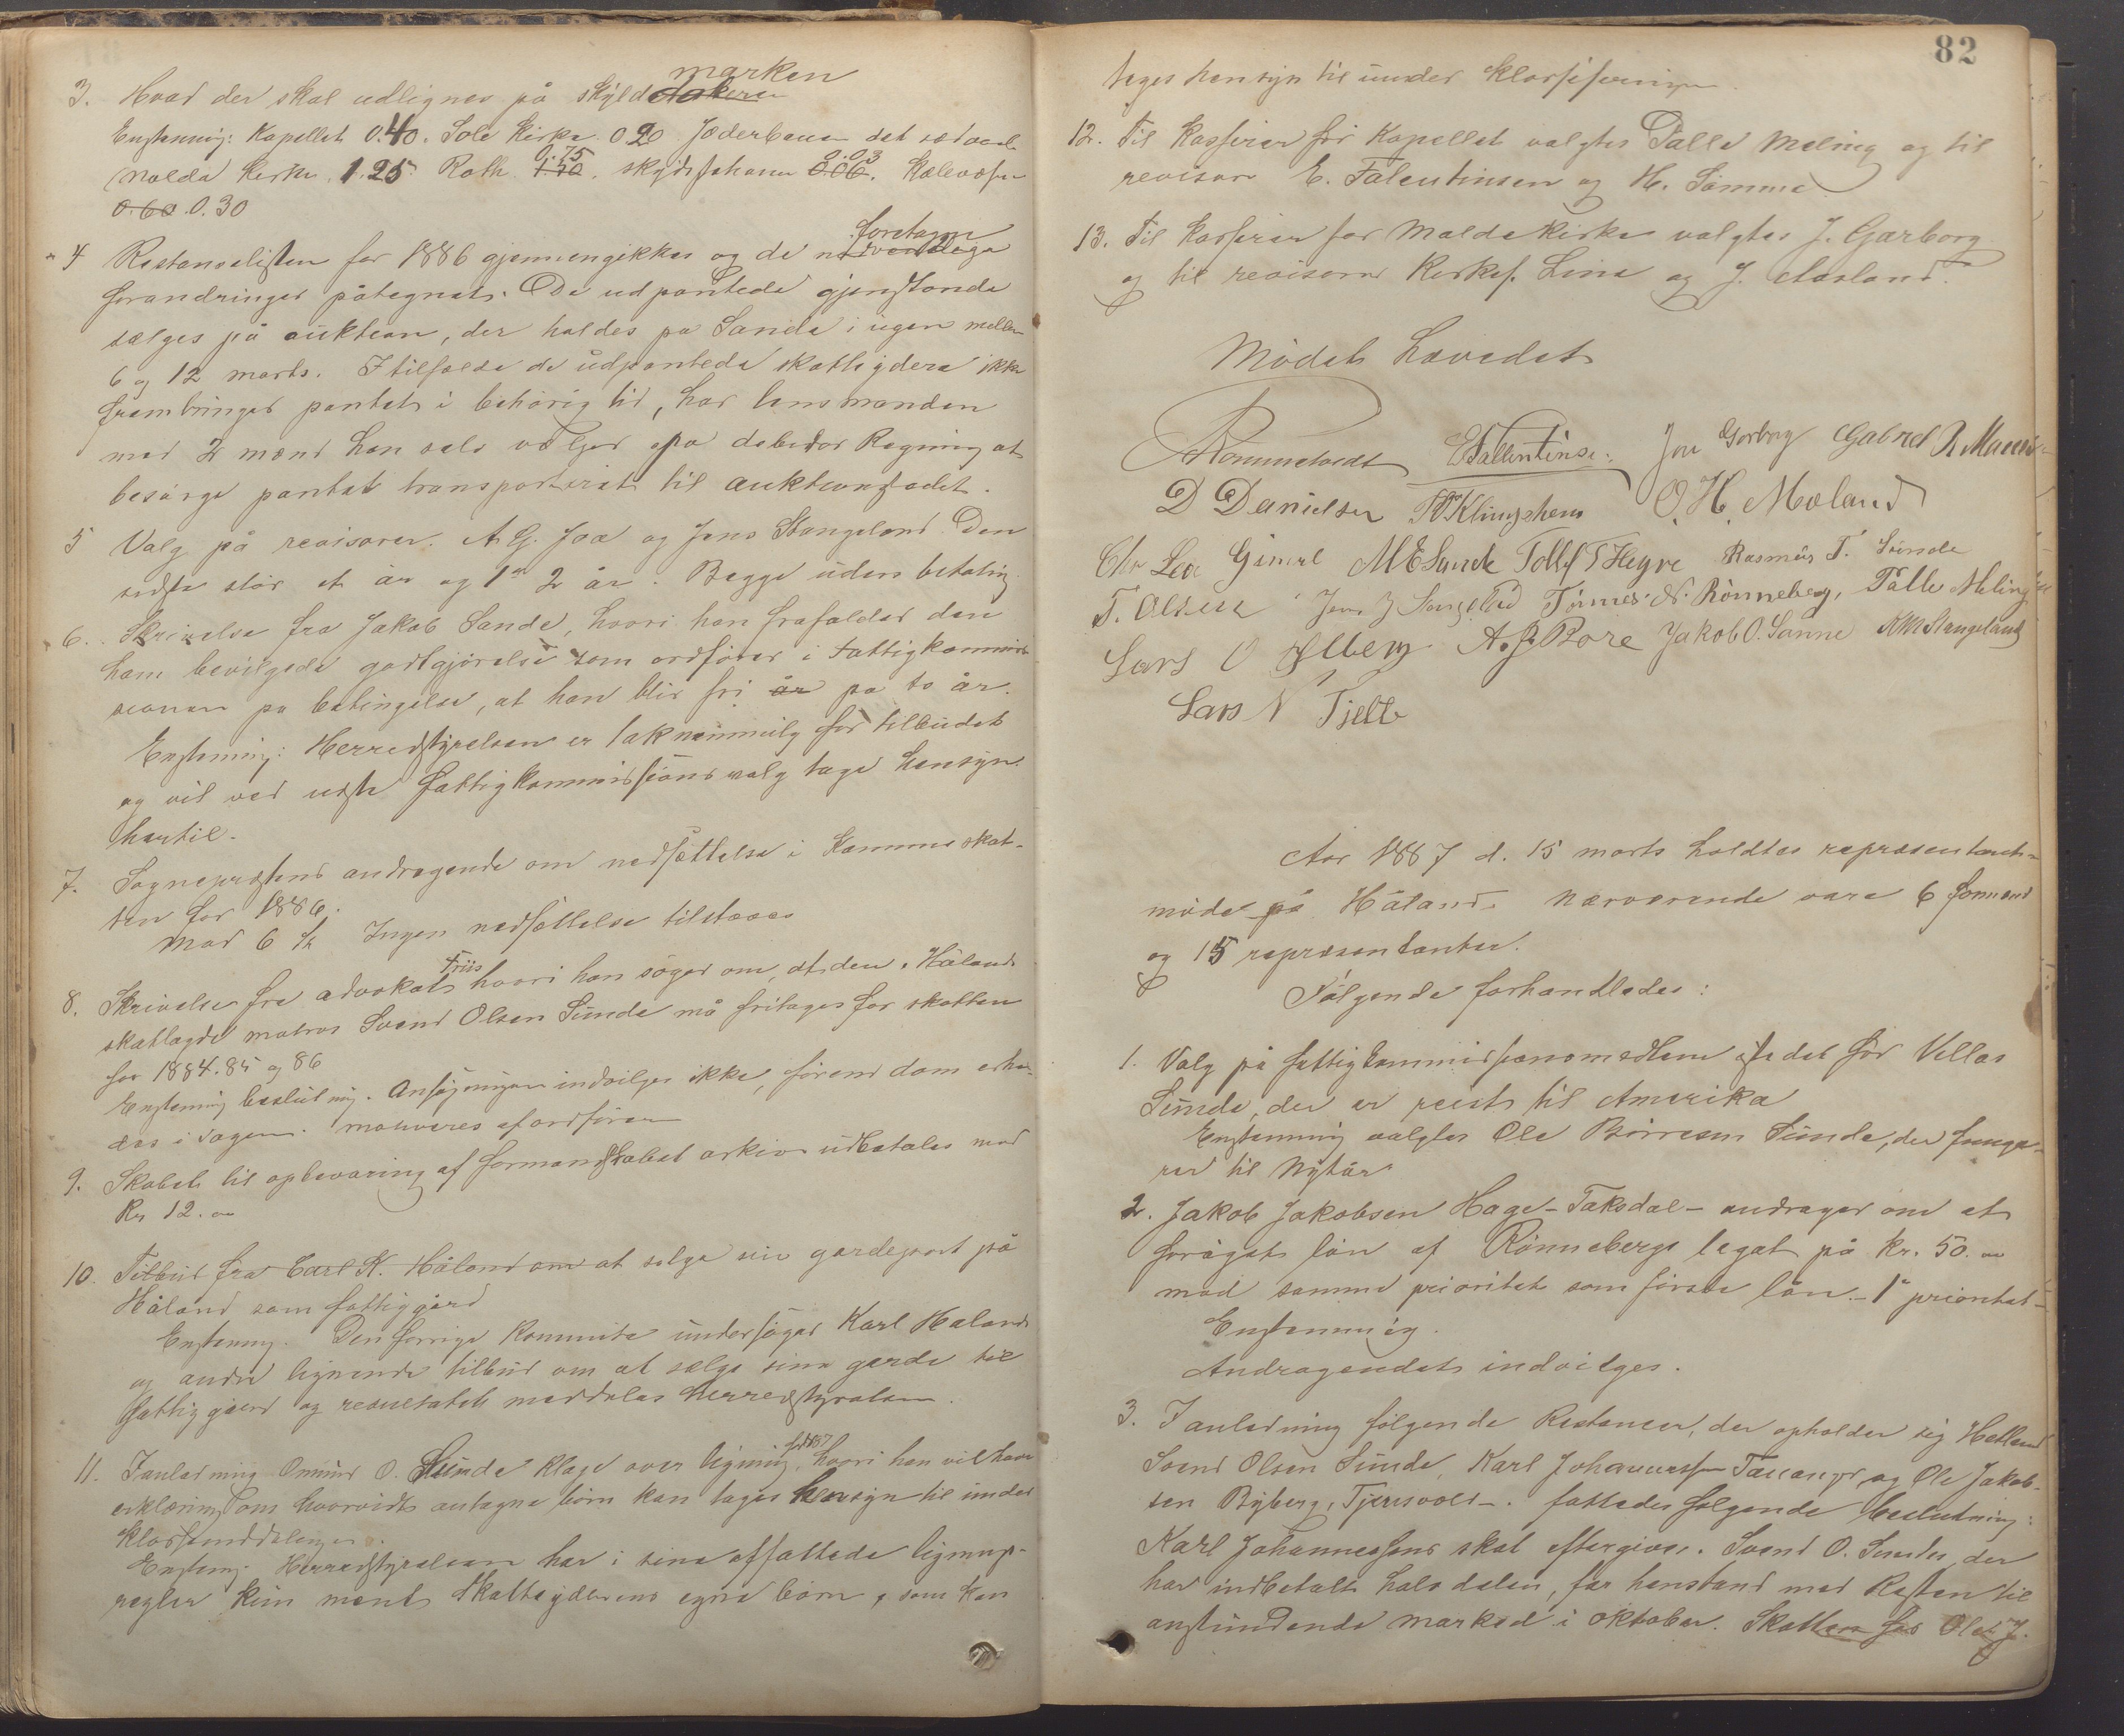 3. Hvad der skal udlignes på skyldmarken
Enstemmig: Kapellet 0.40. Sole Kirke 0 20 Jæderbanen det sædvanl.
Malde Kirke 1.25. Roth 0.75 1.50. skydsstationer 0.03 0.06. Kælevæsen
0.60. 0.30
4 Restanselisten for 1886 gjennemgikkes og de foretagne nødvendige
forandringer påtegnet. De udpantede gjenstande
sælges på auktion, der holdes på Sande i ugen mellem
6 og 12 marts. I tilfælde de udpantede skatteydere ikke
frembringer pantet i behörig tid, har lensmanden
med 2 mænd han selv vælger på debitors Regning at
besörge pantet transporteret til auktionstedet.
5 Valg på revisorer. A. G. Joa og Jens Stangeland. Den
sidste står et år og 1ste 2 år. Begge uden betaling.
6. Skrivelse fra Jakob Sande, hvori han frafalder den
ham bevilgede godtgjörelse som ordförer i Fattigkommis-
sionen på betingelse, at han blir fri år på to år.
Enstemmig: Herredstyrelsen er taknemmelig for tilbudet
og vil ved næste fattigkommissions valg tage hensyn
hertil.
7. Sognepræstens andragende om nedsættelse i Kommuneskat-
ten for 1886.
Mod 6 st. Ingen nedsættelse tilstaaes
8. Skrivelse fra advokat Friis hvori han söger om, at den i Håland
skatlagde matros Svend Olsen Sunde må fritages for skatten
for 1884. 85 og 86
Enstemmig beslutning. Ansögningen indvilges ikke, förend dom erhol-
des i sagen. motiveres af ordförer
9. Skabet til opbevaring af formandskabet arkiv udbetales med
Kr 12.00
10. Tilbud fra Carl K. Håland om at selge sin gardepart på
Håland som fattiggård
Enstemmig. Den forrige Kommite undersöger Karl Halands
og andre lignende tilbud om at sælge sine garde til
fattiggård og resultatet meddeles herredstyrelsen.
11. I anledning Ommund O. Sunde klage over ligning for 1887, hvori han vil have
erklæring om hvorvidt antagne börn kan tages hensyn til under
klasseinddelingen.
Enstemmig. Herredstyrelsen har i sine affattede lignings-
regler kun ment skatteyderens egne börn, som kan
82
tages hensyn til under klassificeringen.
12. Til kasserer for Kapellet valgtes Palle Meling og til
revisorer E. Falentinsen og H. Sömme
13. Til kasserer for Malde Kirke valgtes J. Garborg
og til revisorer Kirkes. Line og J. Aasland.
Mödet hævedet
Rommetvedt E Fallentinse. Jon Garborg Gabriel R Maurs
D Danielsen Klingsheim O. H. Mæland
Chr Lea Gimre M E Sande Tollef T Hegre Rasmus T. Sunde
T. Olsen Jens J Stangeland Tönnes N. Rönneberg, Palle Meling
Lars O Ølberg A. J. Bore Jakob O. Sanne K M Stangeland
Lars N Tjelte
Aar 1887 d. 15 marts holdtes repræsentant-
möde på Håland. Nærværende vare 6 formænd
og 15 repræsentanter.
Fölgende forhandledes:
1. Valg på fattigkommissionsmedlem istedet för Villas
Sunde, der er reist til Amerika
Enstemmig valgtes Ole Börresen Sunde, der funge-
rer til Nytår
2. Jakob Jakobsen Hage - Taksdal - andrager om et
foröget lån af Rönnebergs legat på kr. 50.00
mod samme prioritet som förste lån. - 1ste prioritet -
Enstemmig.
Andragendet indvilges.
3. I anledning fölgende Restancer, der opholder sig Hetland
Svend Olsen Sunde, Karl Johannessen Tananger, og Ole Jakob-
sen Byberg, Tjensvold -. fattedes fölgende beslutning:
Karl Johannessens skat eftergives. Svend O. Sunde, der
har indbetalt halvdelen, får henstand med Resten til
anstundende marked i oktober. Skatten for Ole J.